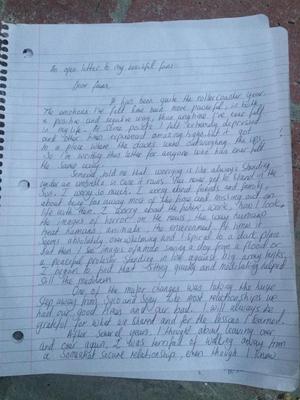 An open letter to my beautiful fans
Dear fans,
It has been quite the rollercoaster year.
The emotions I've felt have been more powerful, in both
a positive and negative way, than anytime I've ever felt
in my life. At some points I felt extremely depressed
and other times experienced amazing highs, but it got
to a place where the downs were outweighing the ups.
So I'm writing this letter for anyone who has ever felt
the same way.
Someone told me that worrying is like always standing
under an umbrella in case it rains. You never get to stand in the
sun. I worry so much. I worry about friends and family,
about being far away most of the time and missing out on
life with them. I worry about the future, work, how I look,
the images of horror on the news, the way humans
treat humans, animals, the environment. At times it
seems absolutely overwhelming and I spiral to a dark place.
But then I see images of a man saving a dog from a flood or
a peaceful protestor standing in line against big army tanks,
I began to find that sitting quietly and meditating helped
still the madness.
One of the major changes was taking the huge
step away from Syco and Iggy. Like most relationships we
had our good times and our bad. I will always be
grateful for what we shared and for the lessons I learned.
After several years I thought about leaving over
and over again. I was terrified of walking away from
a somewhat secure relationship, even though I knew